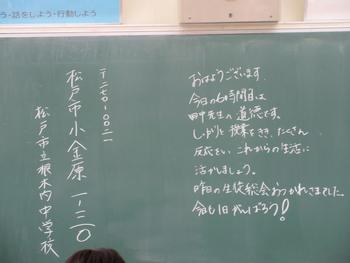 う・話をしよう・行動しよう
おはようございます。
今日の6時間目は
田中先生の道徳です。
しっかりと授業をきき、たくさん
反応をし、これからの生活に
活かしましょう。
昨日の生徒総会おつかれさまでした。
今日も1日がんばろう!
〒二七〇-〇〇二一
松戸市小金原一-三〇
松戸市立根木内中学校